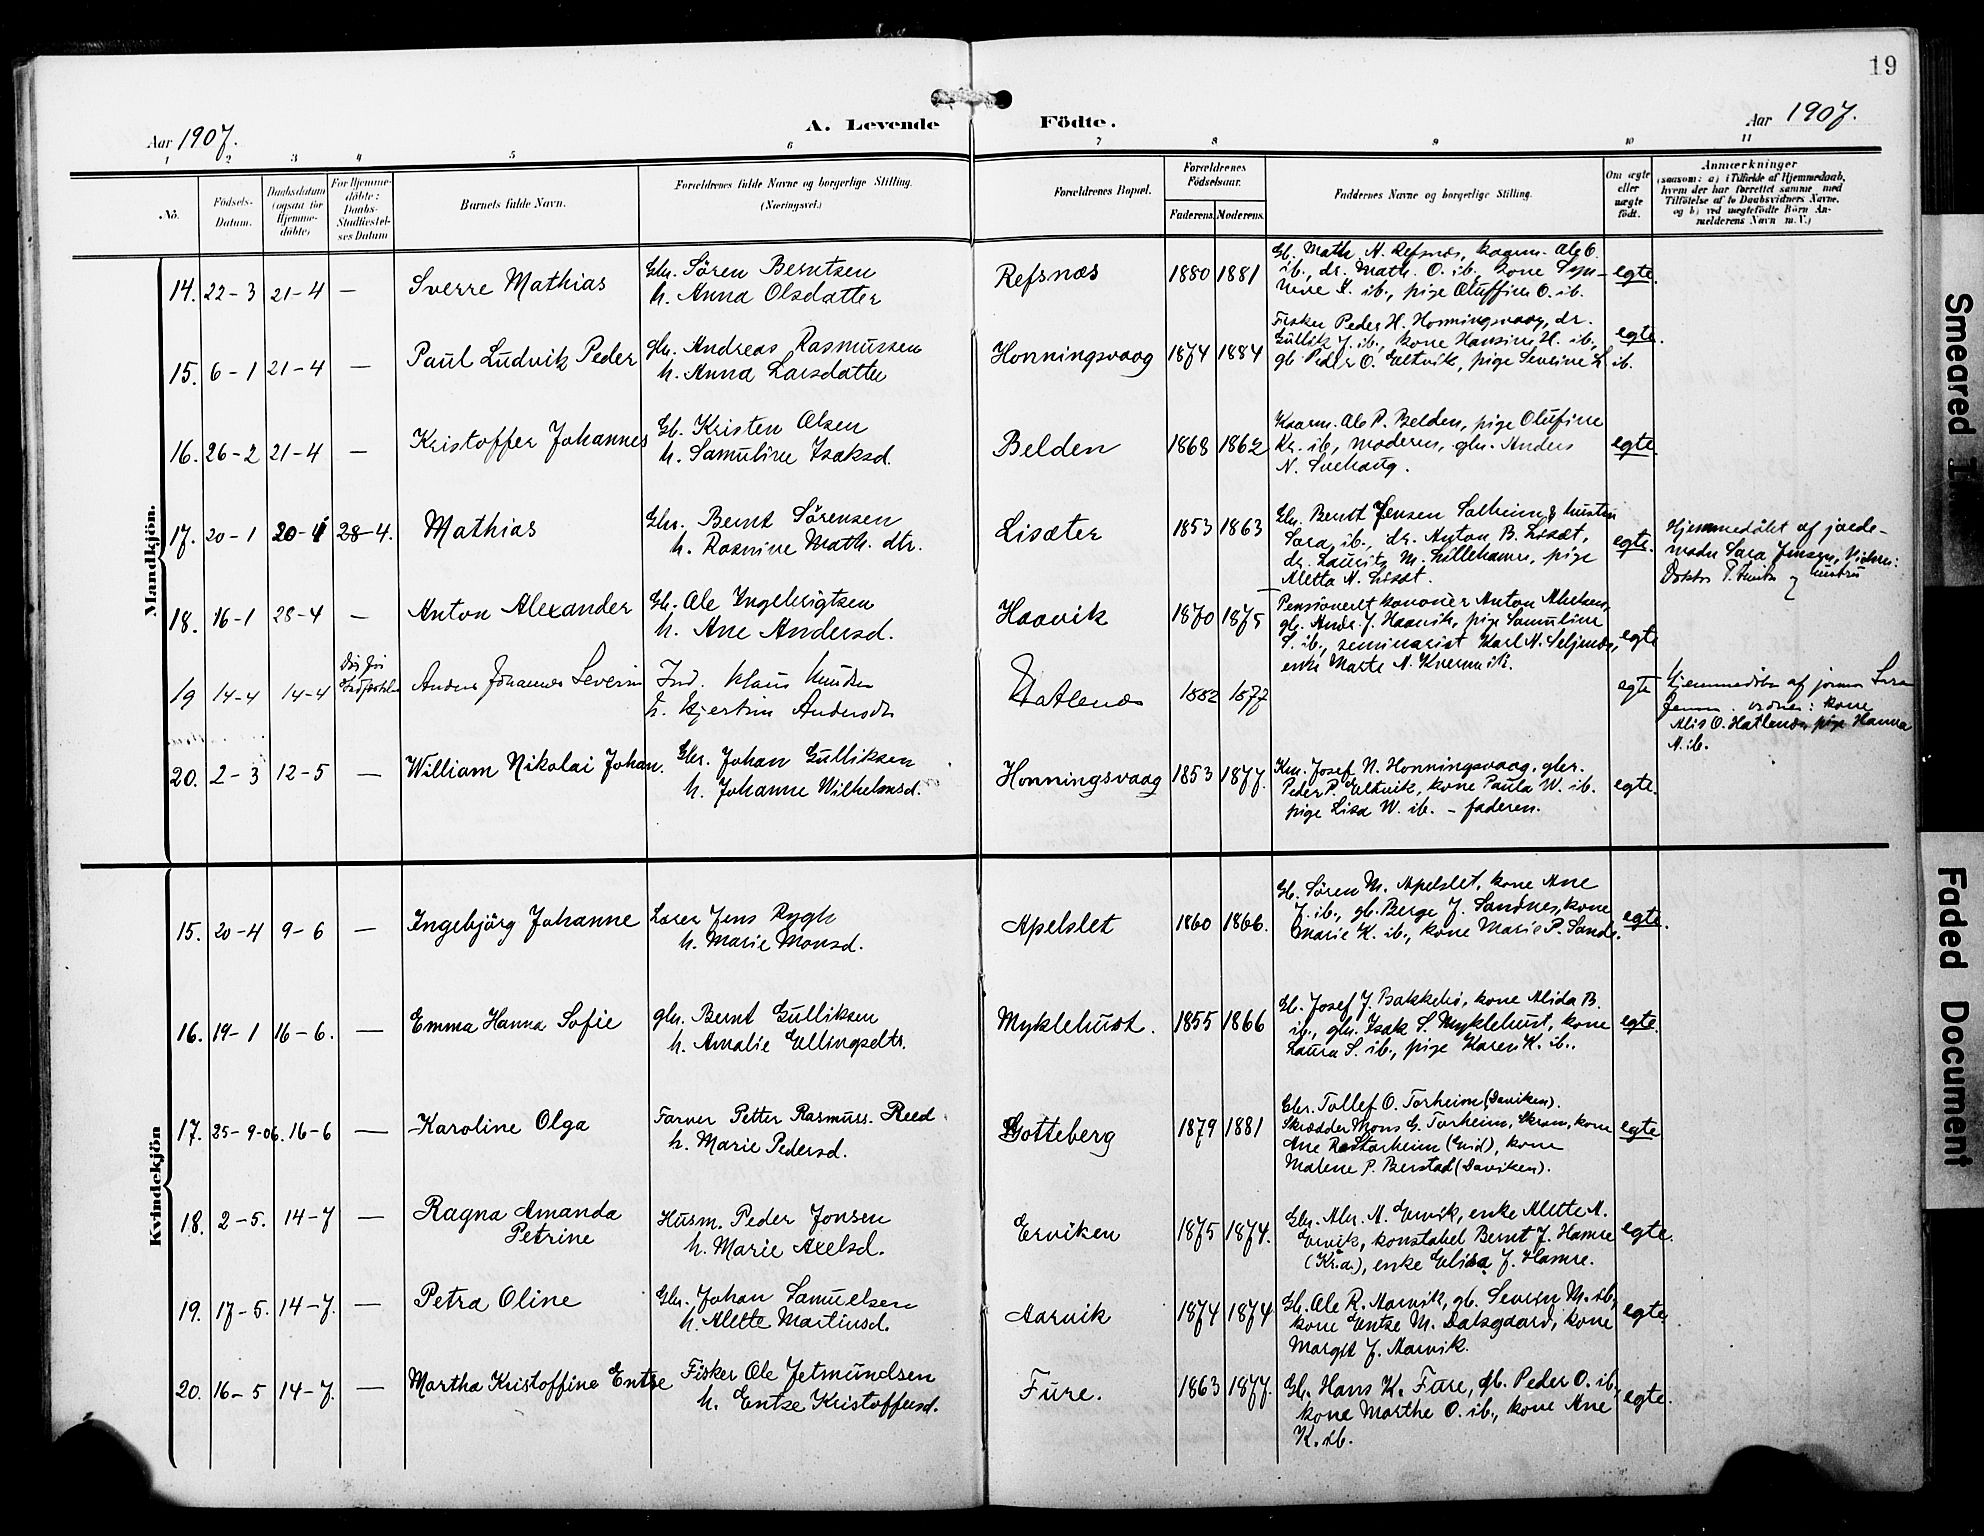 19
Aar 1907.
A. Levende Födte.
Aar 1907.
1 2 3 4 5 6 7 8 9 10 11
No.
Födsels-Datum.
Daabsdatum (ogsaa for Hjemme-döbte)
For Hjemme-döbte: Daabs-Stadfæstel-ses Datum
Barnets fulde Navn.
Forældrenes fulde Navne og borgerlige Stilling. (Næringsvei.)
Forældrenes Bopæl.
Forældrenes Födselsaar.
Faderens. Moderens.
Faddernes Navne og borgerlige Stilling.
Om ægte eller uægte født.
Anmærkninger
(saasom: a) i Tilfælde af Hjemmedaab,
hvem der har forrettet samme med
Tilföielse af to Daabsvidners Navne,
og b) ved uægtefödte Börn An-
melderens Navn m. V.)
Mandkjön.
14. 22-3 21-4 — Sverre Mathias
Gbr. Sören Berntsen
h. Anna Olsdatter
Refsnæs 1880 1881
Gb. Math. A. Refsnæs, kaarm. Ole O.
ib., dr. Math. O. ib., kone Syn-
neve A. ib., pige Oluffine O. ib.
egte.
15. 6-1 21-4 — Paul Ludvik Peder
gbr. Andreas Rasmussen
h. Anna Larsdatter
Honningsvaag 1874 1884
Fisker Peder H. Honningsvaag, dr.
Gullik J. ib., kone Hansine H. ib.,
gb. Peder O. Eltvik, pige Severine L. ib.
egte.
16. 26-2 21-4 — Kristoffer Johannes
Gb. Kristen Olsen
h. Samuline Isaksd.
Belden 1868 1862
Kaarm. Ole P. Belden, pige Olufine
Kr. ib., moderen, gbr. Anders
N. Sæhaug.
egte.
17. 20-1 20-1 28-4. Mathias
Gbr. Bernt Sörensen
h. Rasmine Math. dtr.
Lisæter 1853 1863
Gbr. Bernt Jensen Salheim & hustru
Sara ib., dr. Anton B. Lisæt,
dr. Laurits M. Lillehamn, pige
Aletta N. Lisæt.
egte.
Hjemmedöbt af jorde-
moder Sara Jensen, Vidner:
Doktor og hustru
18. 16-1 28-4 — Anton Alexander
Gb. Ole Ingebrigtsen
h. Ane Andersd.
Haavik 1870 1875
Pensioneret kanonér Anton Abelsen,
gb. Andr. J. Haavik, pige Samuline
S. ib., seminarist Karl N. Seljenæs,
enke Marte N. Kvernvik.
egte
19 14-4 14-4 Död før Stadfæstelse Anders Johannes Severin
Ind. Klaus Knudsen
h. Kjerstine Andersdtr
Hatlenæs 1882 1877
egte
Hjemmedöbt af jormor Sara
Jensen. vidner: kone
Alis O. Hatlenæs, pige Hanna
A. ib.
20. 2-3 12-5 — William Nikolai Johan.
Gbr. Johan Gulliksen
h. Johanne Wilhelmsd.
Honningsvaag 1853 1877.
Km. Josef N. Honningsvaag, gbr.
Peder P. Eltvik, kone Paula W. ib.
pige Lisa W. ib. – faderen.
egte.
Kvindekjön
15. 20-4 9-6 — Ingebjörg Johanne
Lærer Jens Rygh
h. Marie Monsd.
Apelslet 1860 1866.
Gb. Sören M. Apelslet, kone Ane
J. ib., gb. Berge J. Sandnes, kone
Marie K. ib., kone Marie P. Sande.
egte.
16. 19-1 16-6. — Emma Hanna Sofie
gbr. Bernt Gulliksen
h. Amalie Ellingsdtr.
Myklehust. 1855 1866
Gb. Josef J. Bakkebö, kone Alida B.
ib., gbr. Isak S. Myklehust, kone
Laura S. ib., pige Karen K. ib..
egte.
17. 25-9-06. 16-6 — Karoline Olga
Farver Petter Rasmuss. Reed
h. Marie Pedersd.
Gotteberg 1879 1881
Gbr. Tollef O. Torheim (Daviken).
Skrædder Mons G. Torheim, Skram, kone
Ane R. Starheim (Eid), kone
Malene P. Berstad (Daviken).
egte
18. 2-5. 14-7 — Ragna Amanda Petrine
Husm. Peder Jonsen
h. Marie Axelsd.
Erviken 1875 1874.
Gbr. Abr. A. Ervik, enke Alette A.
Ervik, konstabel Bernt J. Hamre
(Kr.a.), enke Elisa J. Hamre.
egte.
19. 17-5. 14-7. — Petra Oline
Gbr. Johan Samuelsen
h. Alette Martinsd.
Aarvik 1874 1874
Gb. Ole R. Aarvik, gb. Severin M. ib.,
kone Entse M. Dalsgaard, kone
Margit J. Aarvik.
egte
20. 16-5 14-7. — Martha Kristoffine Entse
Fisker Ole Jetmundsen
h. Entse Kristoffersd.
Fure. 1863 1877.
Gb. Hans K. Fure, gb. Peder O. ib.,
kone Marthe O. ib., kone Ane
K. ib.
egte.
Smeared
Faded Document